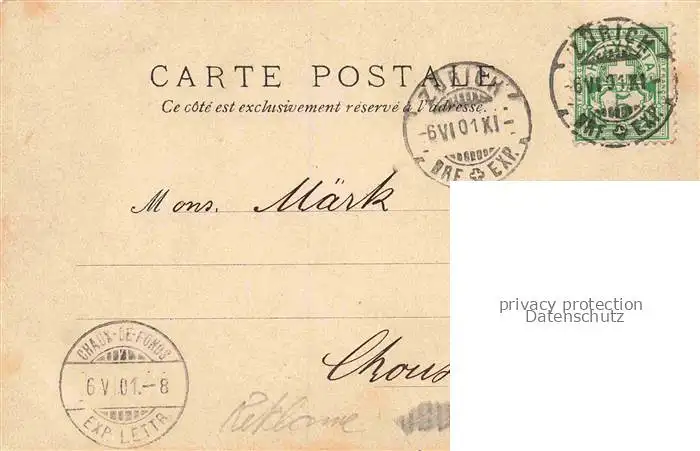 CARTE POSTALE
Ce côté est exclusivement réservé à l'adresse.
ZÜRICH
-6 VI 01 XI-
BRF. EXP.
ZÜRICH
-6 VI 01 XI-
BRF. EXP.
Mons. Märk
privacy protection
Datenschutz
CHAUX-DE-FONDS
6 VI 01.-8
EXP. LETTR.
Chous
Reklame